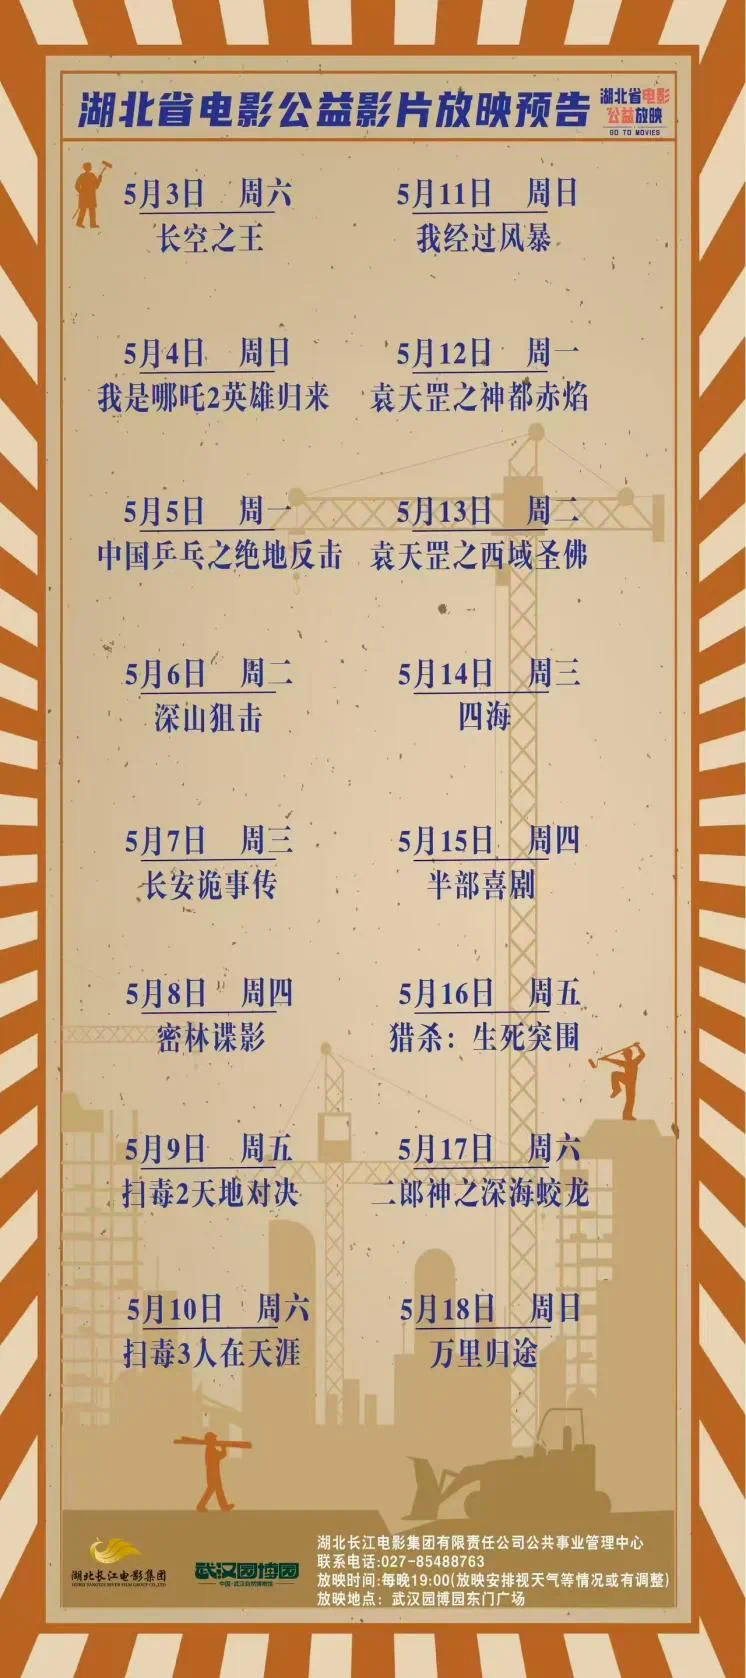 湖北省电影公益影片放映预告
湖北省电影
公益放映
GO TO MOVIES
5月3日 周六
长空之王
5月4日 周日
我是哪吒2英雄归来
5月5日 周一
中国乒乓之绝地反击
5月6日 周二
深山狙击
5月7日 周三
长安诡事传
5月8日 周四
密林谍影
5月9日 周五
扫毒2天地对决
5月10日 周六
扫毒3人在天涯
5月11日 周日
我经过风暴
5月12日 周一
袁天罡之神都赤焰
5月13日 周二
袁天罡之西域圣佛
5月14日 周三
四海
5月15日 周四
半部喜剧
5月16日 周五
猎杀：生死突围
5月17日 周六
二郎神之深海蛟龙
5月18日 周日
万里归途
湖北长江电影集团
HUBEI YANGTZE RIVER FILM GROUP CO.,LTD
武汉园博园
中国·武汉自然博物馆
湖北长江电影集团有限责任公司公共事业管理中心
联系电话:027-85488763
放映时间:每晚19:00(放映安排视天气等情况或有调整)
放映地点：武汉园博园东门广场